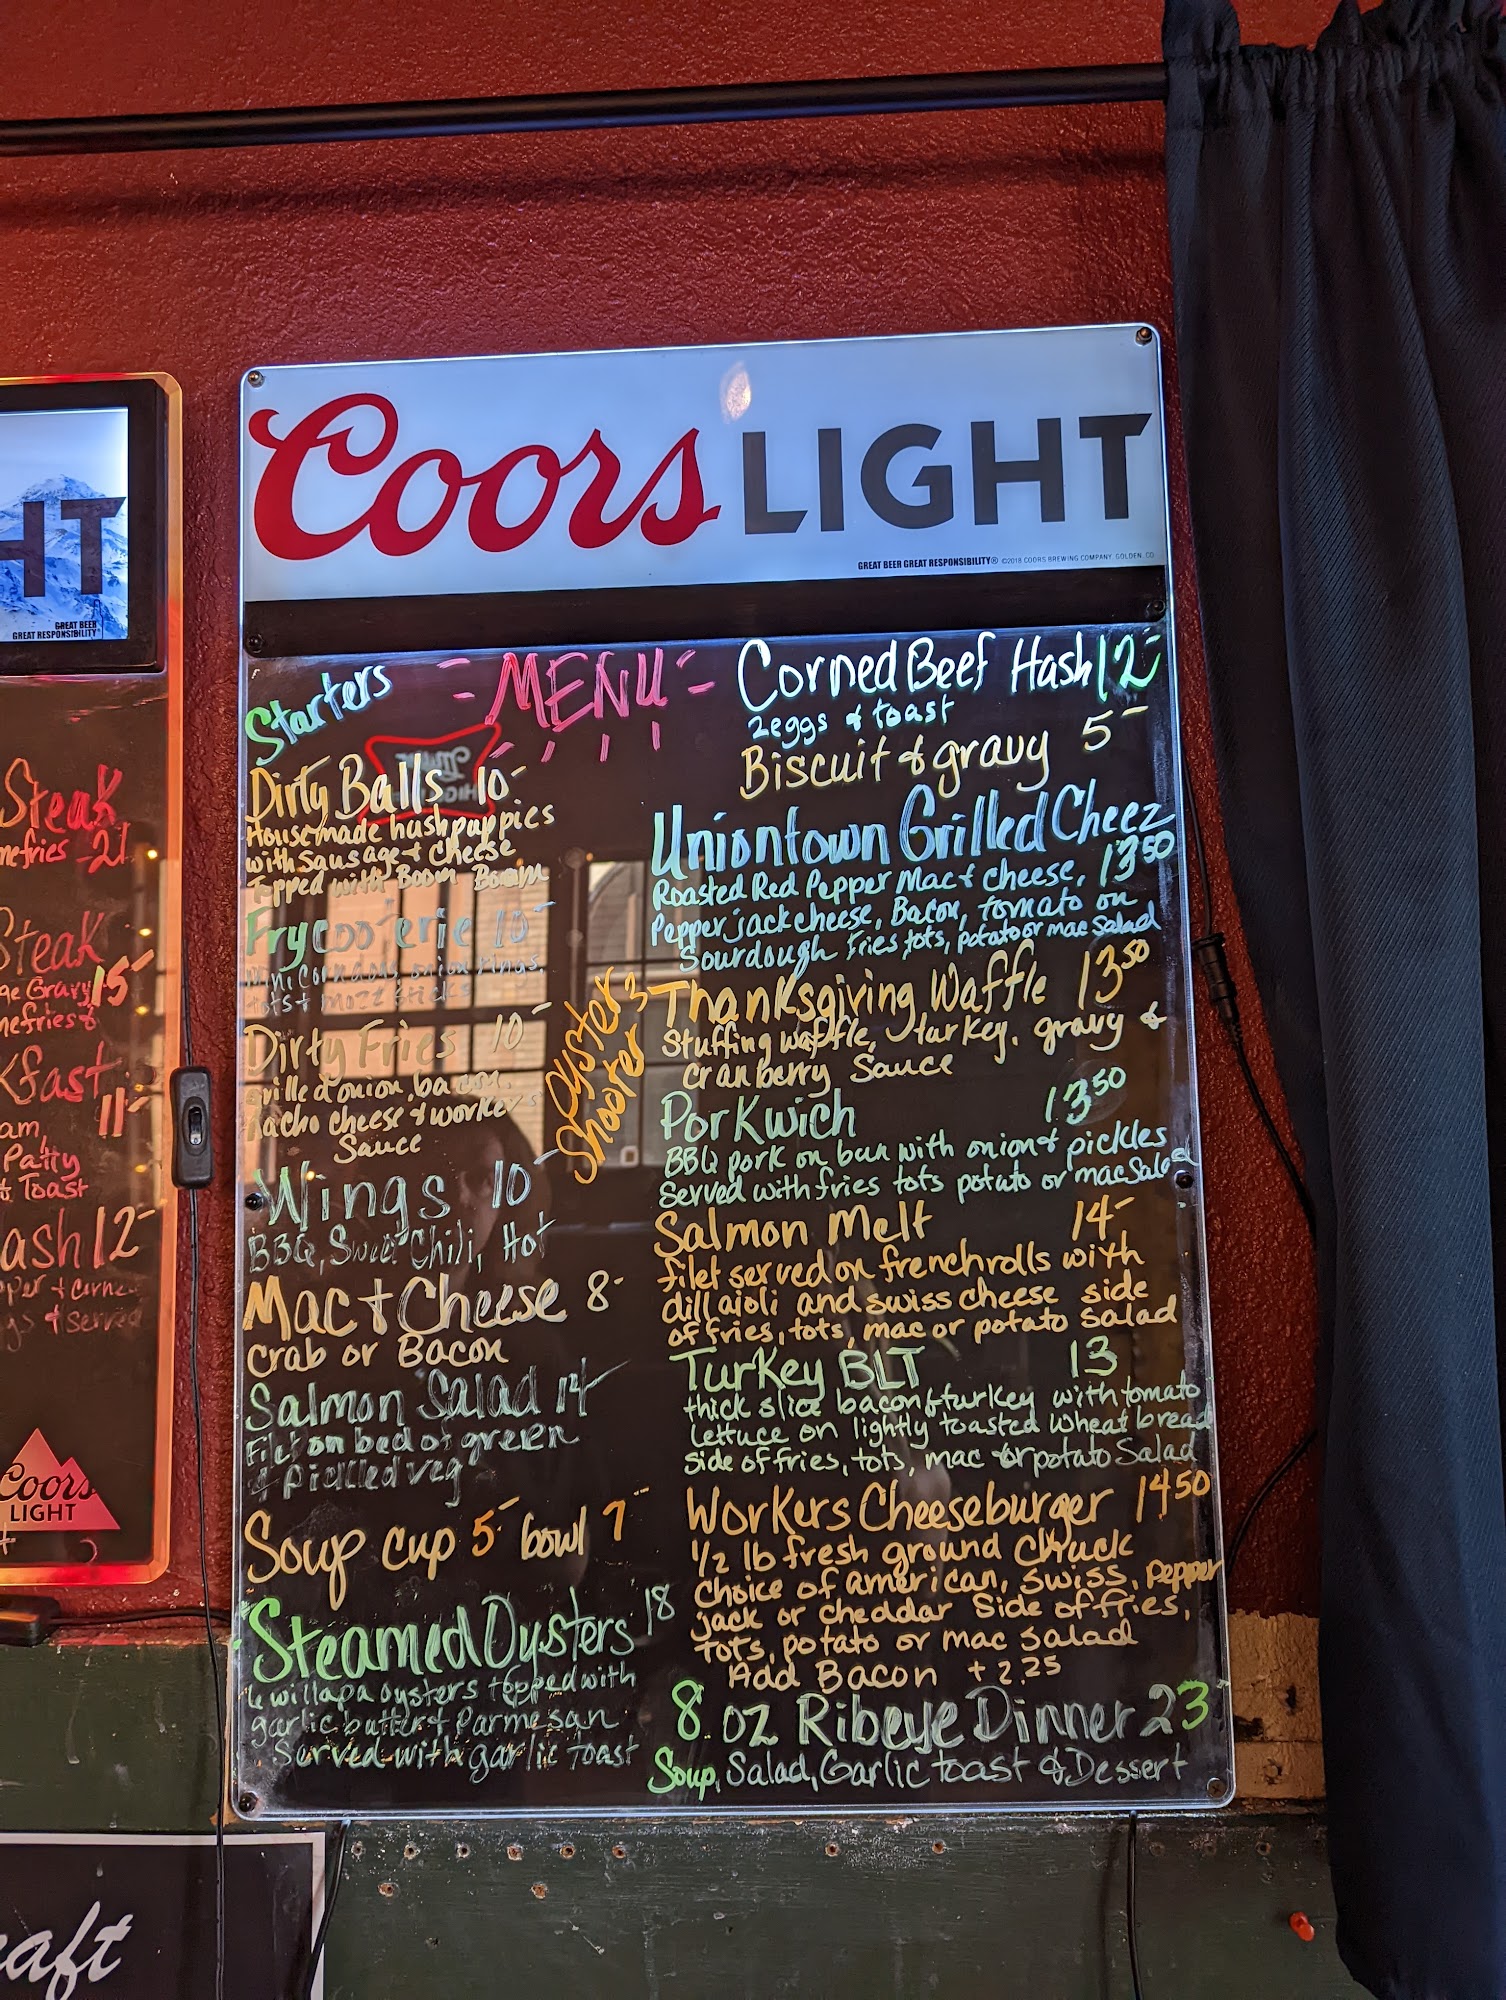 Coors LIGHT
GREAT BEER GREAT RESPONSIBILITY® ©2018 COORS BREWING COMPANY, GOLDEN, CO
- MENU -
Starters
Dirty Balls 10-
Housemade hushpuppies
with sausage + cheese
Topped with Boom Boom
Frycoo'erie 10-
mini corndogs, onion rings,
tots + mozz sticks
Dirty Fries 10-
grilled onion, bacon,
nacho cheese + workers
Sauce
Oyster 3
Shooter
Wings 10-
BBQ, Sweet Chili, Hot
Mac + Cheese 8-
Crab or Bacon
Salmon Salad 14-
Filet on bed of green
+ pickled veg
Soup cup 5- bowl 7-
Steamed Oysters 18
6 willapa oysters topped with
garlic butter + Parmesan
Served with garlic toast
Corned Beef Hash 12-
2 eggs + toast
Biscuit + gravy 5-
Uniontown Grilled Cheez
Roasted Red Pepper Mac + cheese, 13 50
Pepper jack cheese, Bacon, tomato on
Sourdough Fries tots, potato or mac Salad
Thanksgiving Waffle 13 50
Stuffing waffle, turkey, gravy +
Cranberry Sauce
Porkwich 13 50
BBQ pork on bun with onion + pickles
Served with fries tots potato or mac Salad
Salmon Melt 14-
filet served on french rolls with
dill aioli and swiss cheese side
of fries, tots, mac or potato Salad
Turkey BLT 13
thick slice bacon & turkey with tomato
lettuce on lightly toasted wheat bread
side of fries, tots, mac or potato Salad
Workers Cheeseburger 14 50
1/2 lb fresh ground chuck
Choice of american, swiss, pepper
jack or cheddar Side of fries,
tots, potato or mac salad
Add Bacon + 2.25
8 oz Ribeye Dinner 23-
Soup, Salad, Garlic toast & Dessert
HT
GREAT BEER
GREAT RESPONSIBILITY®
Steak
fries -21
Steak
Gravy 15-
fries +
fast
11-
Patty
Toast
ash 12-
+ served
Coors
LIGHT
aft